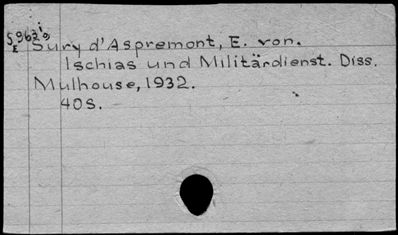 Sury d'Aspremont, E. von.
Ischias und Militärdienst. Diss.
Mulhouse, 1932.
40S.